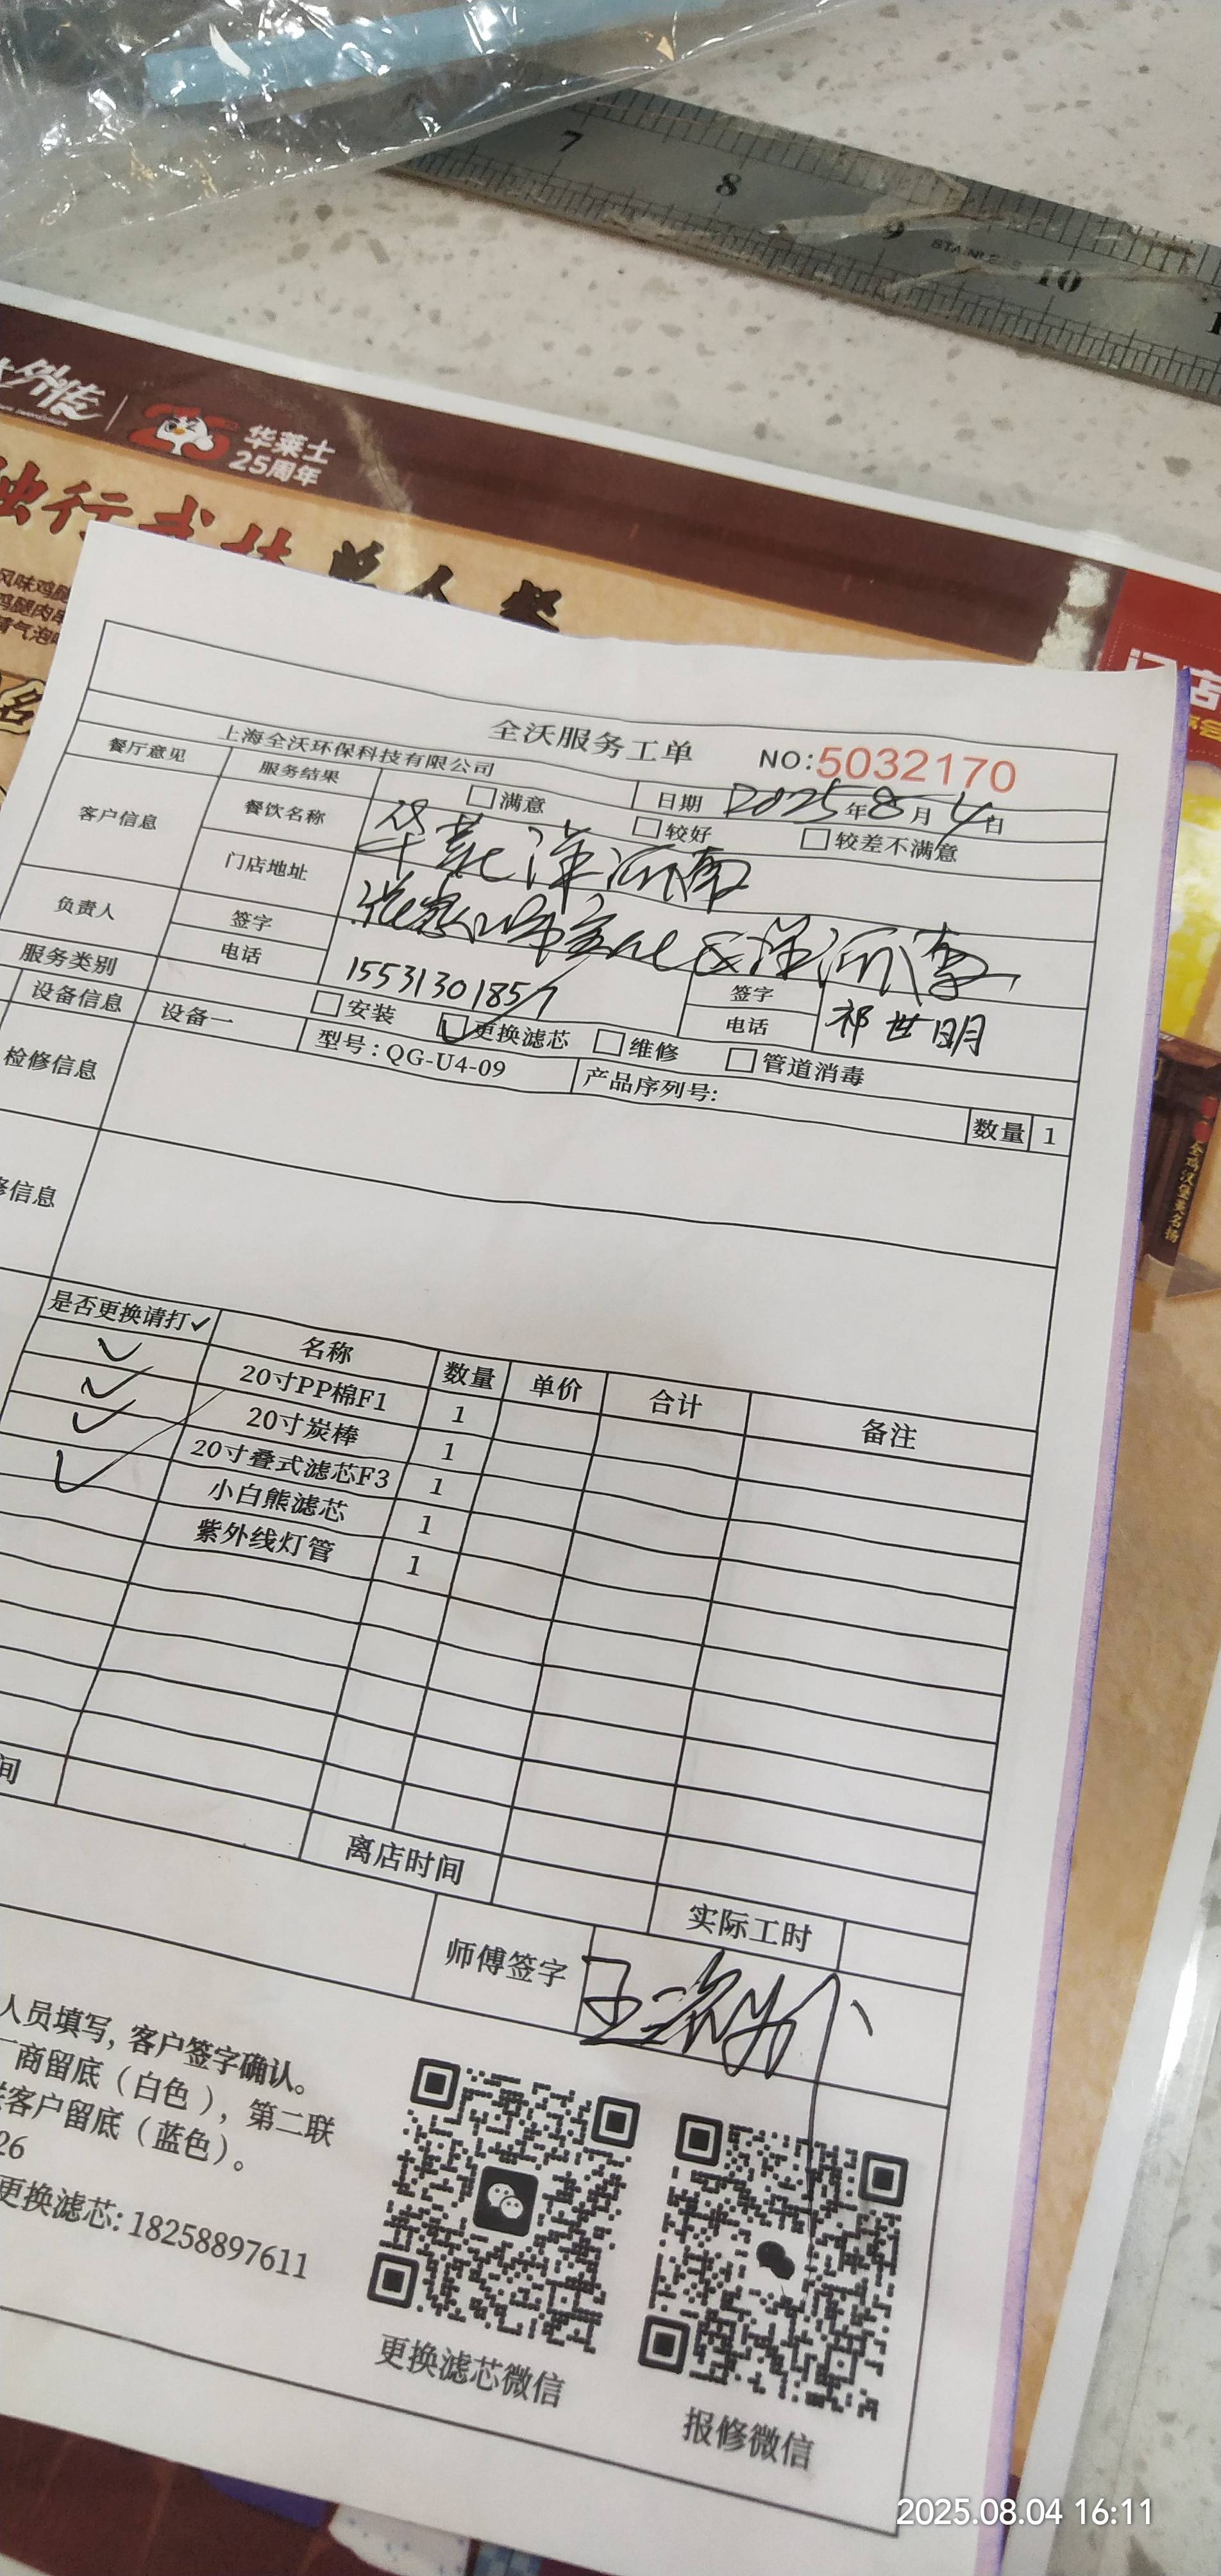 7 8 9 10
外传
华莱士
25周年
独行武林单人餐
风味鸡腿
鸡腿肉
气泡
全沃服务工单
NO:5032170
上海全沃环保科技有限公司
日期 2025年8月4日
餐厅意见 服务结果 满意 较好 较差不满意
客户信息 餐饮名称
门店地址
负责人 签字 签字 祁世明
电话 15531301857 电话
服务类别 安装 更换滤芯 维修 管道消毒
设备信息 设备一 型号:QG-U4-09 产品序列号: 数量 1
检修信息
修信息
是否更换请打✓ 名称 数量 单价 合计 备注
✓ 20寸PP棉F1 1
✓ 20寸炭棒 1
✓ 20寸叠式滤芯F3 1
✓ 小白熊滤芯 1
紫外线灯管 1
间 离店时间 实际工时
师傅签字
人员填写,客户签字确认。
商留底(白色),第二联
客户留底(蓝色)。
26
更换滤芯:18258897611
更换滤芯微信
报修微信
2025.08.04 16:11